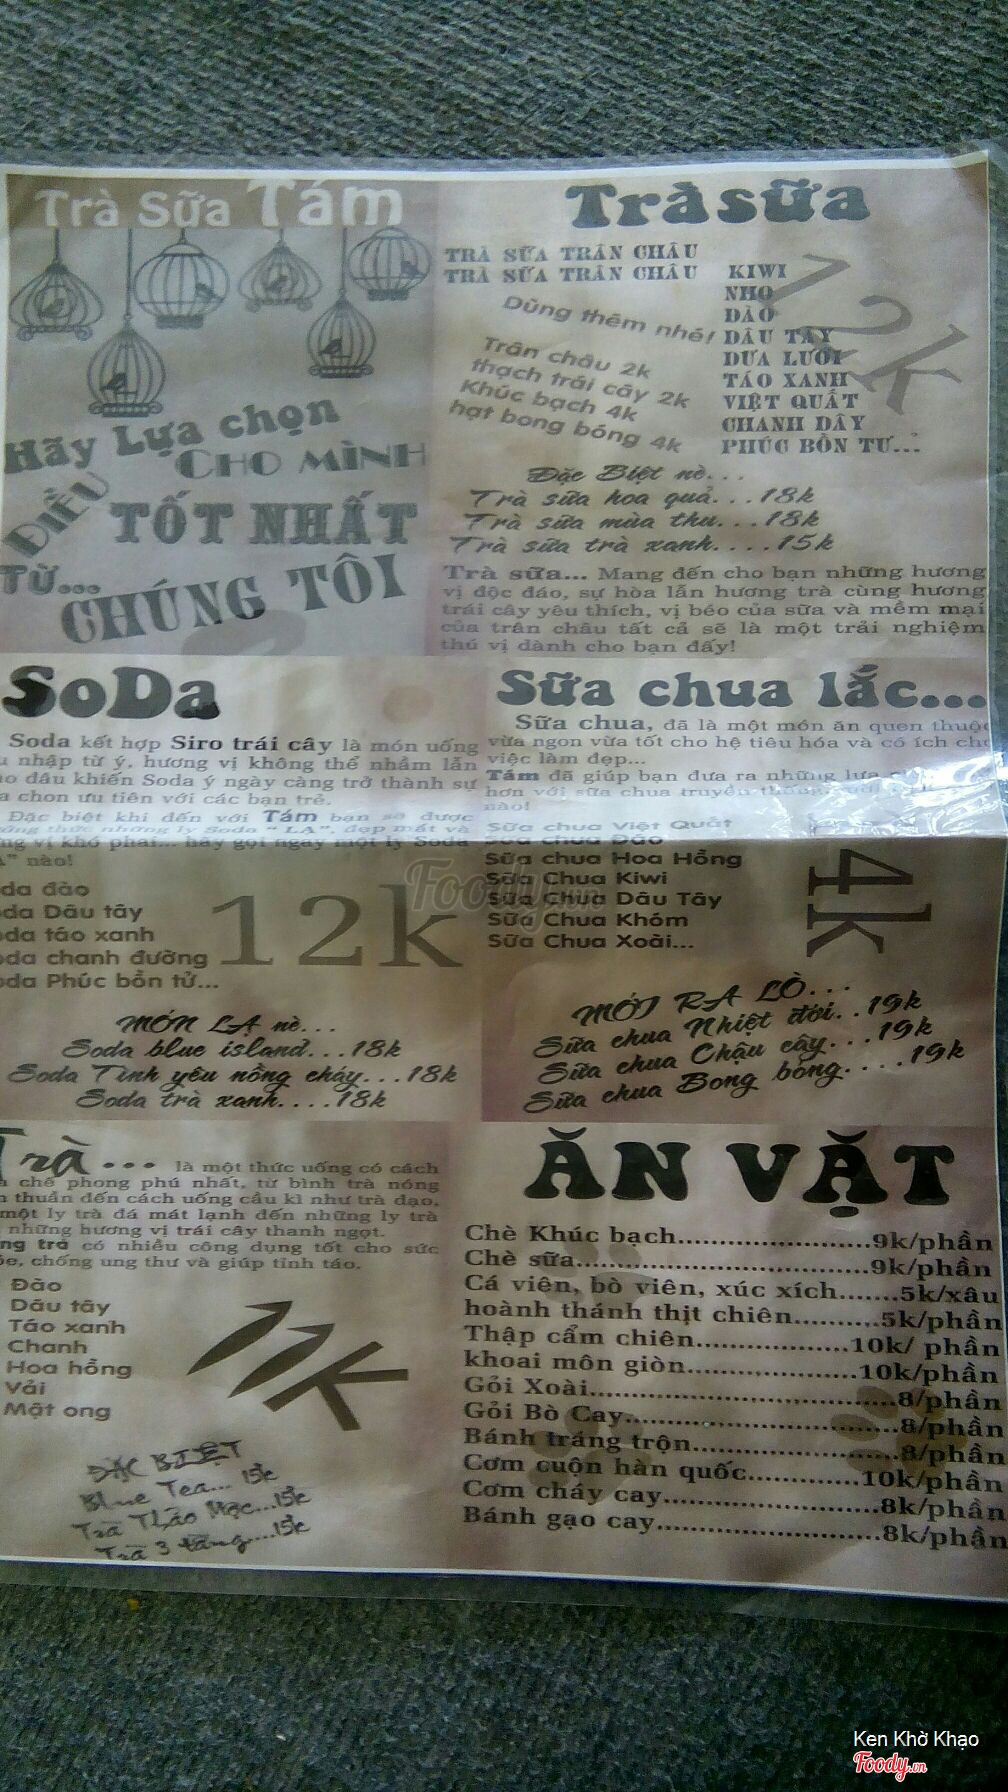 Trà Sữa Tám
Hãy Lựa chọn
CHO MÌNH
ĐIỀU
TỐT NHẤT
TỪ...
CHÚNG TÔI
Trà sữa
TRÀ SỮA TRÂN CHÂU
TRÀ SỮA TRÂN CHÂU KIWI
NHO
ĐÀO
DÂU TÂY
DƯA LƯỚI
TÁO XANH
VIỆT QUẤT
CHANH DÂY
PHÚC BỒN TƯ...
12k
Dùng thêm nhé!
Trân châu 2k
thạch trái cây 2k
Khúc bạch 4k
hạt bong bóng 4k
Đặc Biệt nè...
Trà sữa hoa quả...18k
Trà sữa mùa thu...18k
Trà sữa trà xanh....15k
Trà sữa... Mang đến cho bạn những hương
vị độc đáo, sự hòa lẫn hương trà cùng hương
trái cây yêu thích, vị béo của sữa và mềm mại
của trân châu tất cả sẽ là một trải nghiệm
thú vị dành cho bạn đấy!
SoDa
Soda kết hợp Siro trái cây là món uống
nhập từ ý, hương vị không thể nhầm lẫn
đâu khiến Soda ý ngày càng trở thành sự
chọn ưu tiên với các bạn trẻ.
Đặc biệt khi đến với Tám bạn sẽ được
những ly Soda " LẠ", đẹp mắt và
vị khó phai... hãy gọi ngay một ly Soda
nào!
đào
Dâu tây
táo xanh
chanh đường
Phúc bồn tử...
12k
MÓN LẠ nè...
Soda blue island...18k
Soda Tình yêu nồng cháy...18k
Soda trà xanh....18k
Sữa chua lắc...
Sữa chua, đã là một món ăn quen thuộc
vừa ngon vừa tốt cho hệ tiêu hóa và có ích cho
việc làm đẹp...
Tám đã giúp bạn đưa ra những lựa
hơn với sữa chua truyền thống
nào!
Sữa chua Việt Quất
Sữa chua Đào
Sữa chua Hoa Hồng
Sữa Chua Kiwi
Sữa Chua Dâu Tây
Sữa Chua Khóm
Sữa Chua Xoài...
14k
MỚI RA LÒ...
Sữa chua Nhiệt đới..19k
Sữa chua Chậu cây...19k
Sữa chua Bong bóng....19k
Trà... là một thức uống có cách
chế phong phú nhất, từ bình trà nóng
thuần đến cách uống cầu kì như trà đạo,
một ly trà đá mát lạnh đến những ly trà
những hương vị trái cây thanh ngọt.
trà có nhiều công dụng tốt cho sức
chống ung thư và giúp tỉnh táo.
Đào
Dâu tây
Táo xanh
Chanh
Hoa hồng
Vải
Mật ong
11K
ĐẶC BIỆT
Blue Tea... 15k
Trà Thảo Mộc...15k
Trà 3 tầng....15k
ĂN VẶT
Chè Khúc bạch........................9k/phần
Chè sữa....................................9k/phần
Cá viên, bò viên, xúc xích.......5k/xâu
hoành thánh thịt chiên...........5k/phần
Thập cẩm chiên...................10k/ phần
khoai môn giòn.....................10k/phần
Gỏi Xoài......................................8/phần
Gỏi Bò Cay..................................8/phần
Bánh tráng trộn..........................8/phần
Cơm cuộn hàn quốc.............10k/phần
Cơm cháy cay..........................8k/phần
Bánh gạo cay...........................8k/phần
Foody.vn
Ken Khờ Khạo
Foody.vn